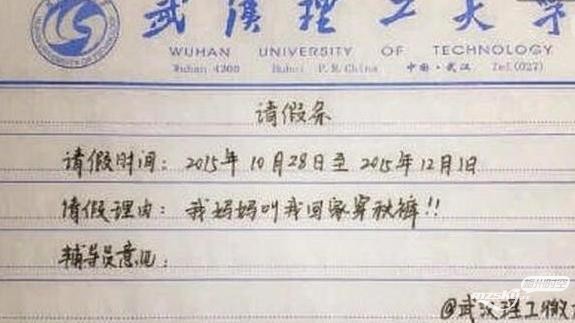 武漢理工大学
WUHAN UNIVERSITY OF TECHNOLOGY
Wuhan 4300 Hubei P.R.China 中国·武汉 Tel:(027)
请假条
请假时间：2015年10月28日至2015年12月1日
请假理由：我妈妈叫我回家穿秋裤!!
辅导员意见：
@武汉理工